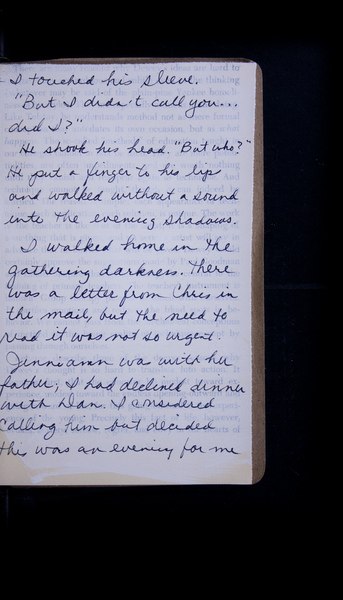 I touched his sleeve.
"But I didn't call you...
did I?"
He shook his head. "But who?"
He put a finger to his lip
and walked without a sound
into the evening shadows.
I walked home in the
gathering darkness. There
was a letter from Chris in
the mail, but the need to
read it was not so urgent.
Jenniann wa with her
father; I had declined dinner
with Dan. I considered
calling him but decided
this was an evening for me